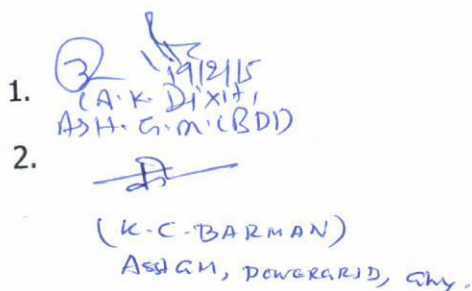 3
19/2/15
1.
(A.K. Dixit,
ASH.G.M.(BDD)
2.
(K.C.BARMAN)
ASSH GM, POWERGRID, Ghy.